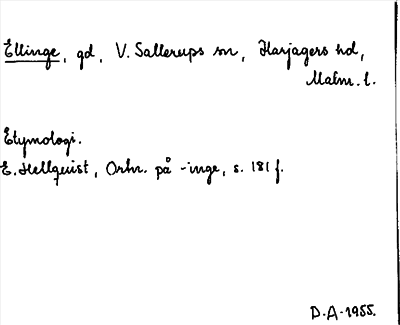 Ellinge, gd, V. Sallerups sn, Harjagers hd,
Malm. l.
Etymologi.
E. Hellquist, Ortn. på -inge, s. 181 f.
D.A. 1955.